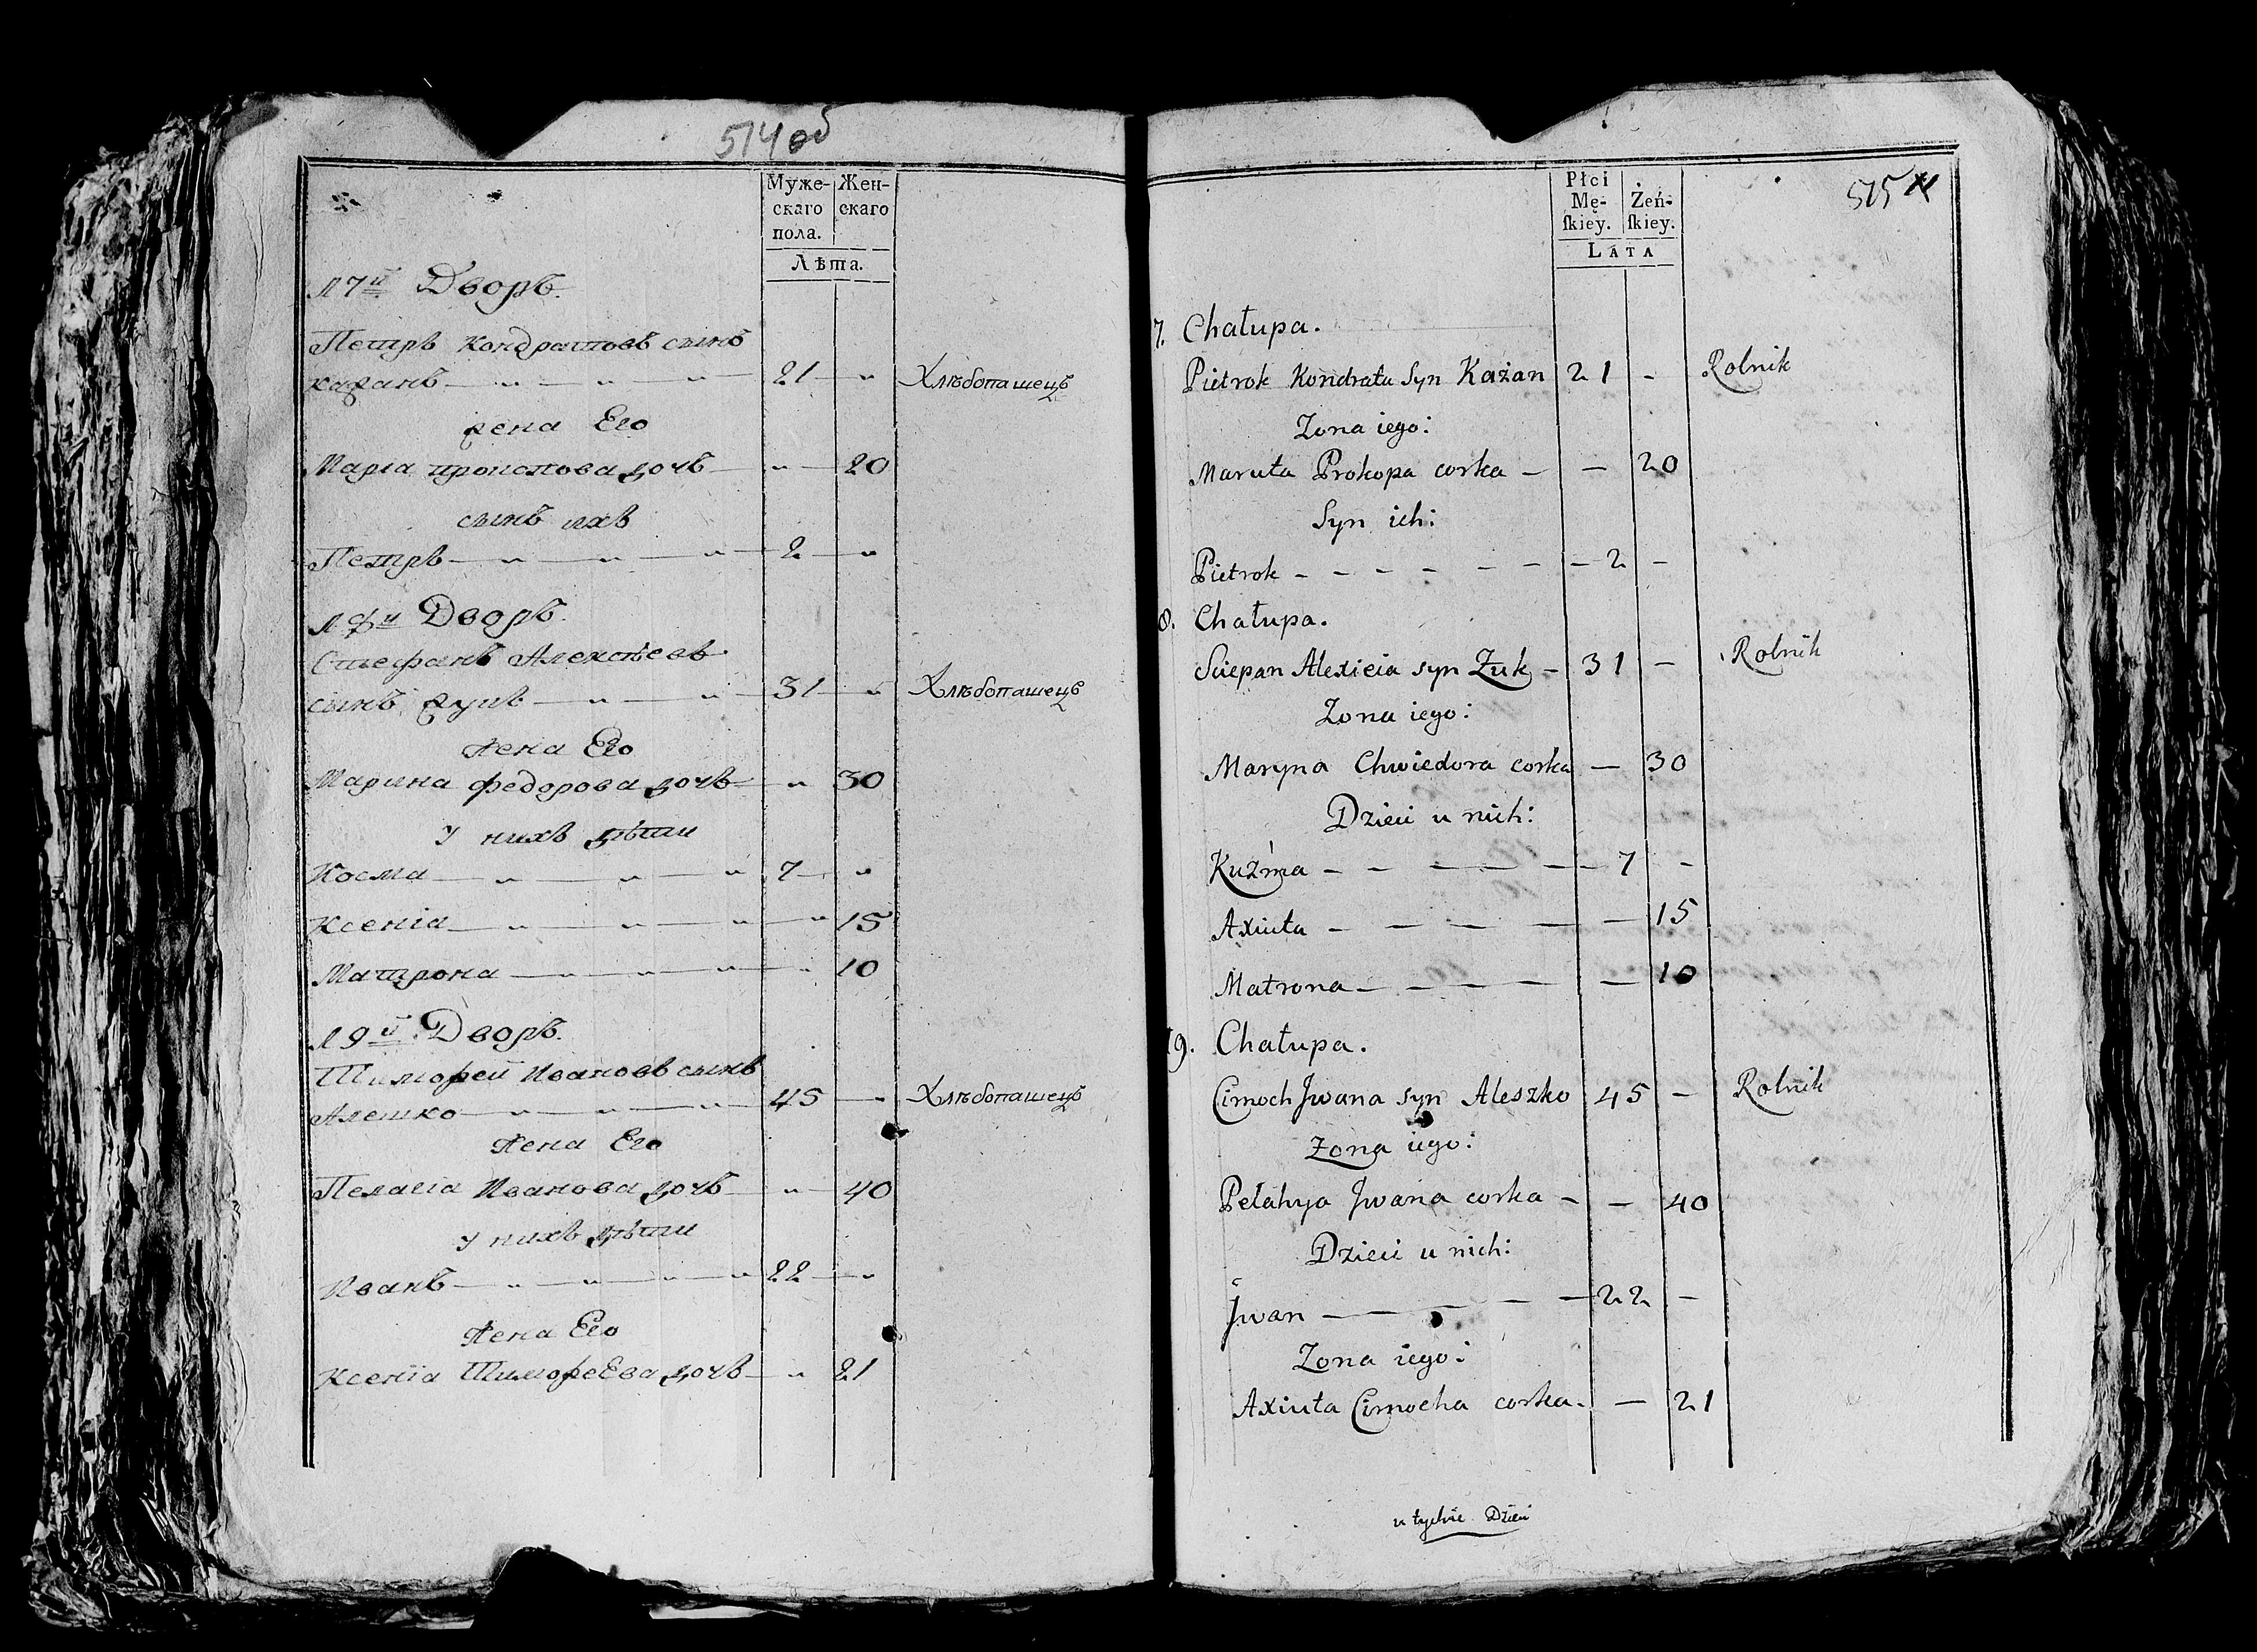 514 об
Муже-
скаго
пола.
Жен-
скаго
Лѣта.
17й Дворъ.
Петръ Кондратовъ сынъ
Кажанъ 21 Хлѣбопашецъ
жена Его
Марiа прокопова дочь 20
сынъ ихъ
Петръ 2
Дворъ.
Стефанъ Алексѣевъ
сынъ Жукъ 31 Хлѣбопашецъ
жена Его
Марина федорова дочь 30
У нихъ дѣти
Косма 7
Ксенiа 15
Матрона 10
19й Дворъ.
Тимофей Ивановъ сынъ
Алешко 45 Хлѣбопашецъ
жена Его
Пелагiа Иванова дочь 40
у нихъ дѣти
Иванъ 22
жена Его
Ксенiа ТимофеЕва дочь 21
515
Płci
Mę-
ſkiey.
Żeń-
ſkiey.
LATA
7. Chałupa.
Pietrok Kondrata Syn Każan 21 - Rolnik
Zona iego:
Maruta Prokopa corka — 20
Syn ich:
Pietrok 2 -
8. Chałupa.
Sciepan Alexieia syn Żuk 31 — Rolnik
Zona iego:
Maryna Chwiedora corka — 30
Dzieci u nich:
Kuźma 7 -
Axiuta — 15
Matrona — 10
19. Chałupa.
Cimoch Jwana syn Aleszko 45 — Rolnik
Żona iego:
Pełahya Jwana corka — 40
Dzieci u nich:
Jwan 22 —
Zona iego:
Axiuta Cimocha corka — 21
u tychże Dzieci